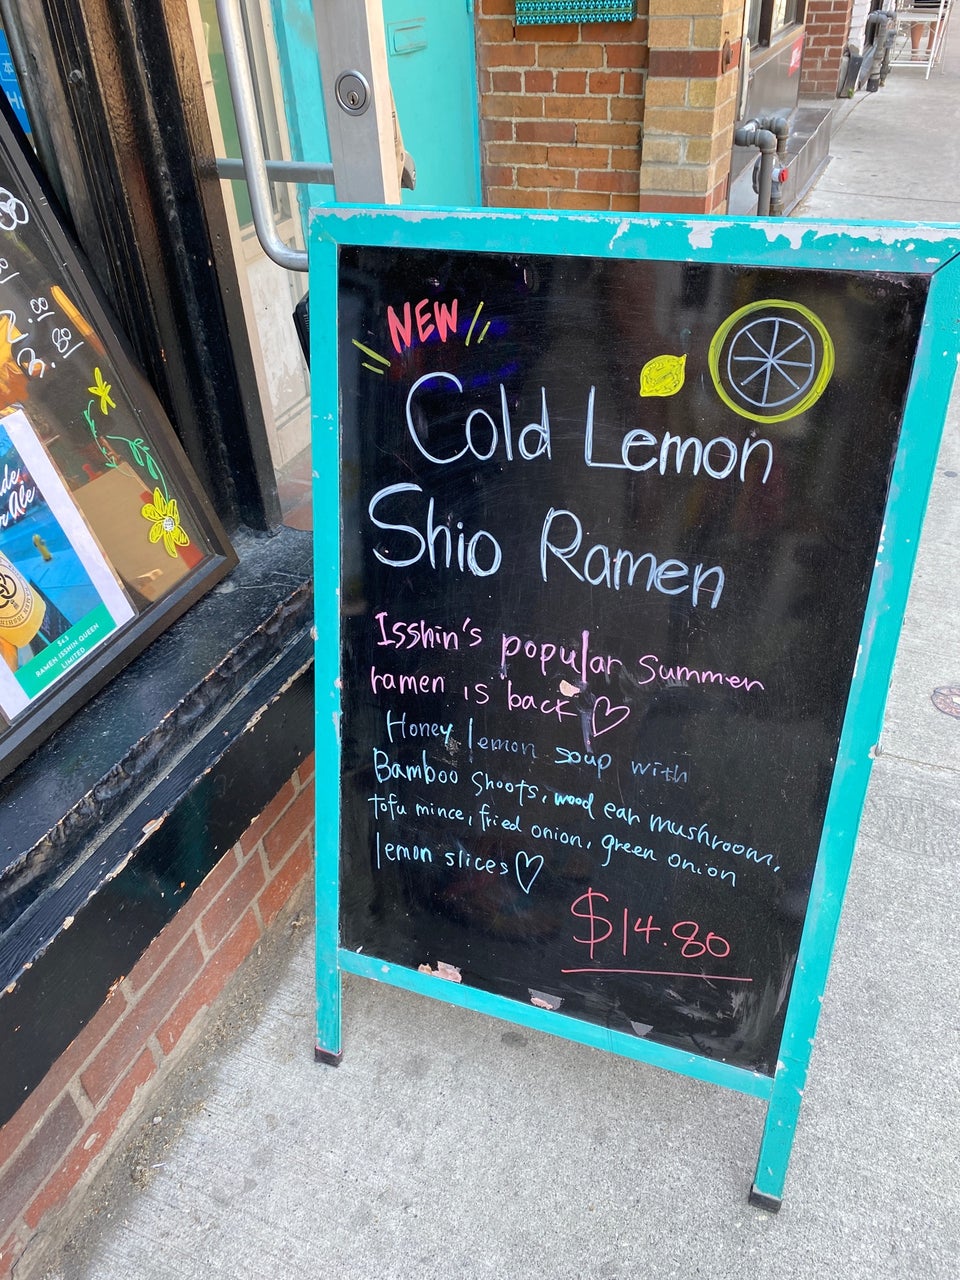 NEW
Cold Lemon
Shio Ramen
Isshin's popular summer
ramen is back
Honey lemon soup with
Bamboo shoots, wood ear mushroom,
tofu mince, fried onion, green onion
lemon slices
$14.80
Ale
RAMEN ISSHIN QUEEN
LIMITED